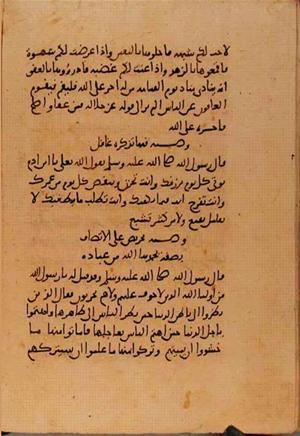 لاحد لكم شبهه فاجلوها باليقين واذا عرضت لكم شهوة
فاقمعوها بالزهد واذا عنت لكم غضبه فادرءوها بالعفو
انه ينادي مناد يوم القيامة من له اجر على الله فليقم فيقوم
العافون عن الناس الم تر الى قوله عز جلاله فمن عفا واصلح
فاجره على الله
وصيه فيها تذكرة غافل
قال رسول الله صلى الله عليه وسلم يقول الله تعالى يا ابن ادم
تؤتى كل يوم برزقك وانت تحزن وينقص كل يوم من عمرك
وانت تفرح انت فيما يكفيك وانت تطلب ما يطغيك لا
بقليل تقنع ولا من كثير تشبع
وصيه تحرض على الاتصاف
بصفة يحمدها الله من عباده
قال رسول الله صلى الله عليه وسلم وقد قيل له يا رسول الله
من اولياء الله الذين لا خوف عليهم ولا هم يحزنون فقال الذين
نظروا الى باطن الدنيا حين نظر الناس الى ظاهرها واهتموا
باجل الدنيا حين اهتم الناس بعاجلها فاماتوا منها ما
خشوا ان يميتهم وتركوا منها ما علموا ان سيتركهم